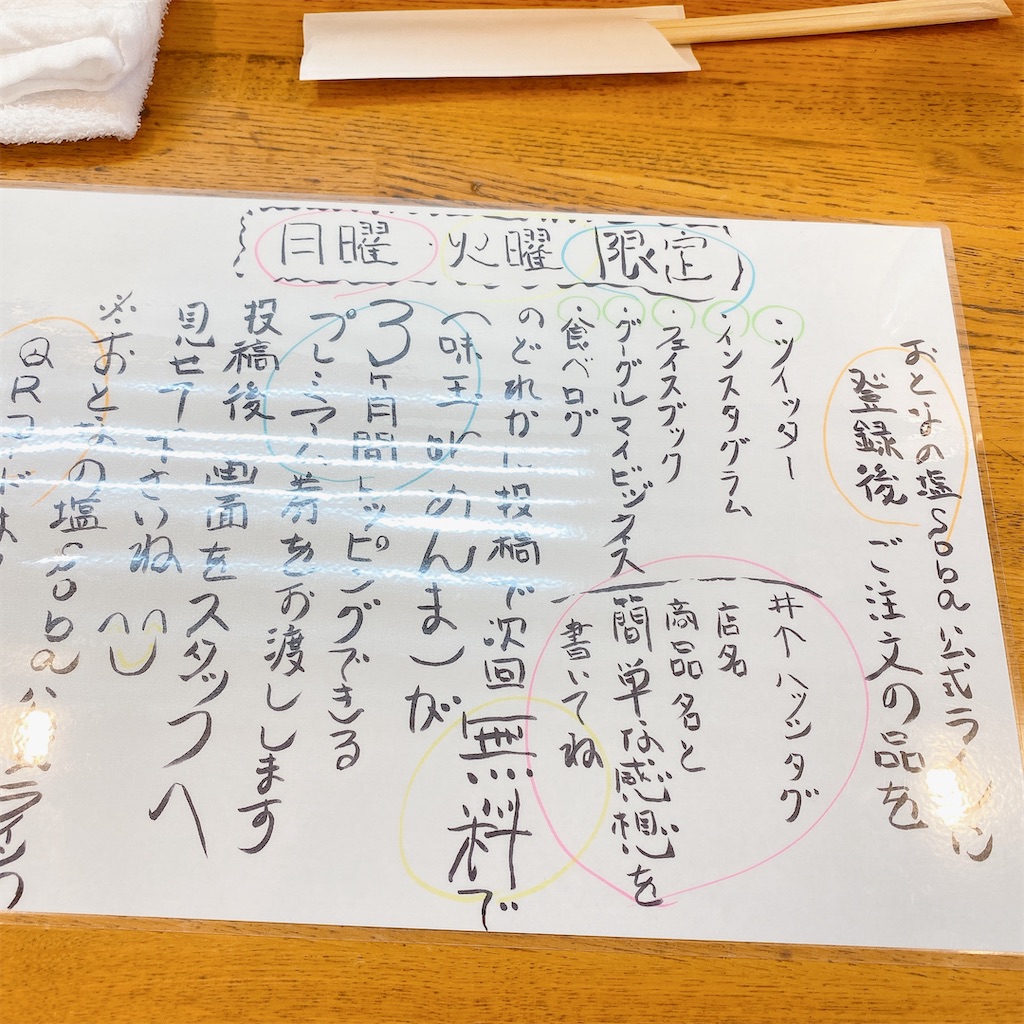 月曜・火曜 限定
おとなの塩soba公式ラインに
登録後 ご注文の品を
・ツイッター
・インスタグラム
・フェイスブック
・グーグルマイビジネス
・食べログ
#个 ハッシタグ
店名
商品名と
簡単な感想を
書いてね
のどれかに投稿で次回無料で
(味玉orめんま)が
3ヶ月間トッピングできる
プレミアム券をお渡しします
投稿後 画面をスタッフへ
見せて下さいね
※おとなの塩soba
QRコードは